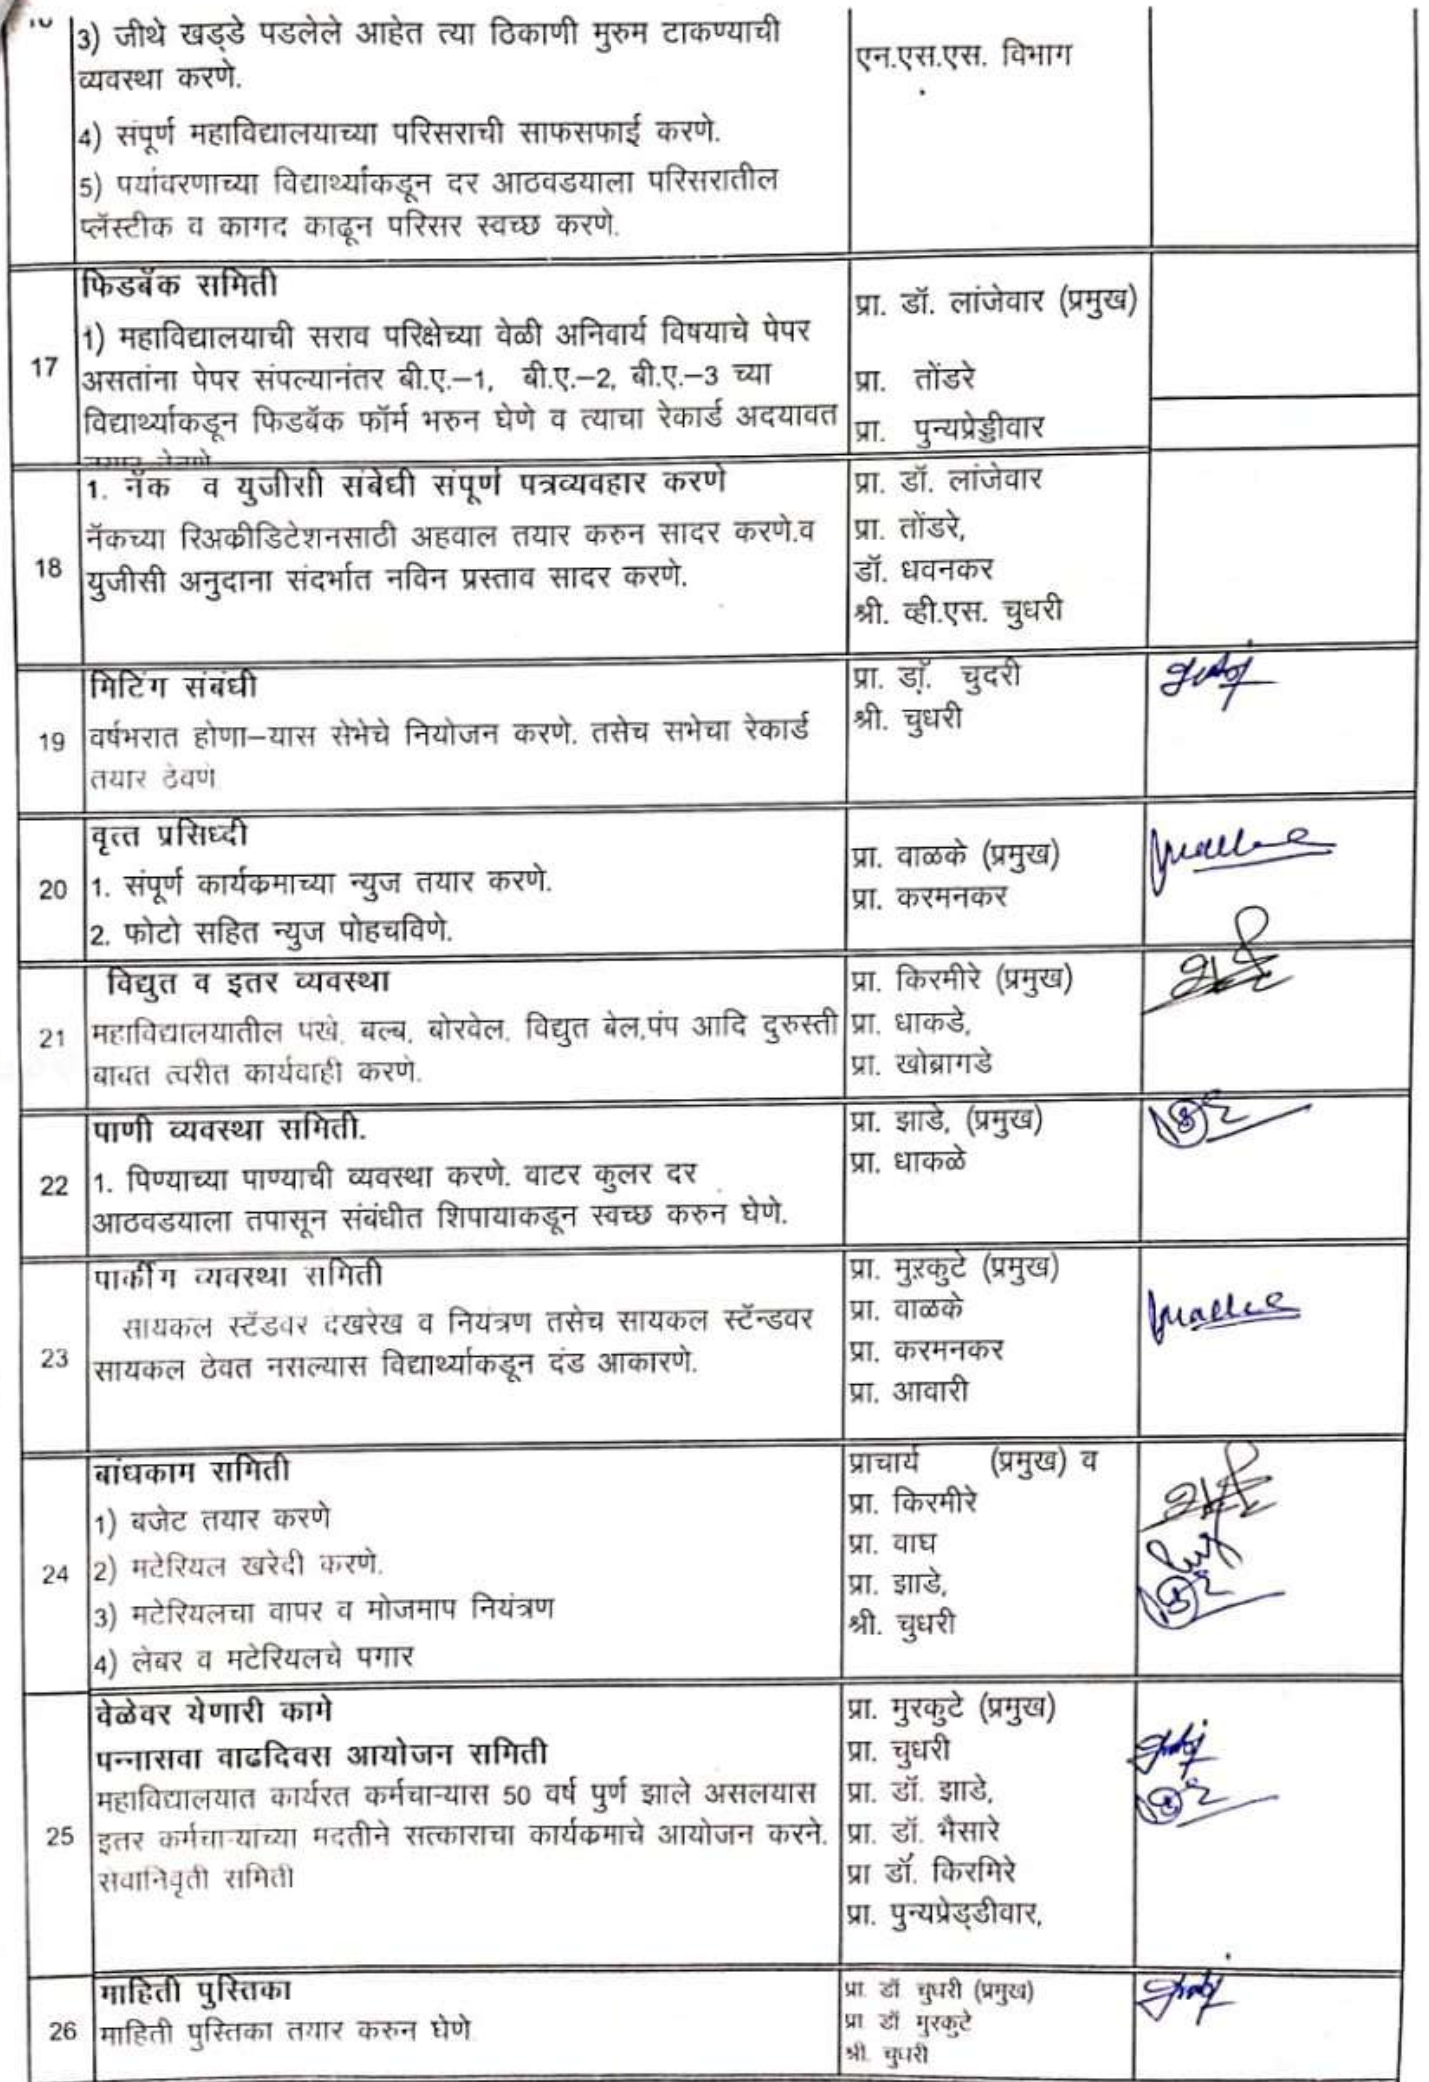 3) जीथे खड्डे पडलेले आहेत त्या ठिकाणी मुरुम टाकण्याची
व्यवस्था करणे.
4) संपूर्ण महाविद्यालयाच्या परिसराची साफसफाई करणे.
5) पर्यावरणाच्या विद्यार्थ्यांकडून दर आठवडयाला परिसरातील
प्लॅस्टीक व कागद काढून परिसर स्वच्छ करणे.
एन.एस.एस. विभाग
17
फिडबॅक समिती
1) महाविद्यालयाची सराव परिक्षेच्या वेळी अनिवार्य विषयाचे पेपर
असतांना पेपर संपल्यानंतर बी.ए.–1, बी.ए.–2, बी.ए.–3 च्या
विद्यार्थ्याकडून फिडबॅक फॉर्म भरुन घेणे व त्याचा रेकार्ड अदयावत
प्रा. डॉ. लांजेवार (प्रमुख)
प्रा. तोंडरे
प्रा. पुन्यप्रेड्डीवार
18
1. नॅक व युजीसी संबेधी संपूर्ण पत्रव्यवहार करणे
नॅकच्या रिअक्रीडिटेशनसाटी अहवाल तयार करुन सादर करणे.व
युजीसी अनुदाना संदर्भात नविन प्रस्ताव सादर करणे.
प्रा. डॉ. लांजेवार
प्रा. तोंडरे,
डॉ. धवनकर
श्री. व्ही.एस. चुधरी
19
मिटिंग संबंधी
वर्षभरात होणा–यास सेभेचे नियोजन करणे. तसेच सभेचा रेकार्ड
तयार ठेवणे
प्रा. डॉ. चुदरी
श्री. चुधरी
20
वृत्त प्रसिध्दी
1. संपूर्ण कार्यक्रमाच्या न्युज तयार करणे.
2. फोटो सहित न्युज पोहचविणे.
प्रा. वाळके (प्रमुख)
प्रा. करमनकर
21
विद्युत व इतर व्यवस्था
महाविद्यालयातील पखे, बल्ब, बोरवेल, विद्युत बेल,पंप आदि दुरुस्ती
बाबत त्वरीत कार्यवाही करणे.
प्रा. किरमीरे (प्रमुख)
प्रा. धाकडे,
प्रा. खोब्रागडे
22
पाणी व्यवस्था समिती.
1. पिण्याच्या पाण्याची व्यवस्था करणे. वाटर कुलर दर
आठवडयाला तपासून संबंधीत शिपायाकडून स्वच्छ करुन घेणे.
प्रा. झाडे, (प्रमुख)
प्रा. धाकळे
23
पार्कीग व्यवस्था समिती
सायकल स्टॅडवर देखरेख व नियंत्रण तसेच सायकल स्टॅन्डवर
सायकल ठेवत नसल्यास विद्यार्थ्याकडून दंड आकारणे.
प्रा. मुरकुटे (प्रमुख)
प्रा. वाळके
प्रा. करमनकर
प्रा. आवारी
24
बांधकाम समिती
1) बजेट तयार करणे
2) मटेरियल खरेदी करणे.
3) मटेरियलचा वापर व मोजमाप नियंत्रण
4) लेबर व मटेरियलचे पगार
प्राचार्य (प्रमुख) व
प्रा. किरमीरे
प्रा. वाघ
प्रा. झाडे,
श्री. चुधरी
25
वेळेवर येणारी कामे
पन्नासवा वाढदिवस आयोजन समिती
महाविद्यालयात कार्यरत कर्मचाऱ्यास 50 वर्ष पुर्ण झाले असलयास
इतर कर्मचाऱ्यांच्या मदतीने सत्काराचा कार्यक्रमाचे आयोजन करने.
सेवानिवृती समिती
प्रा. मुरकुटे (प्रमुख)
प्रा. चुधरी
प्रा. डॉ. झाडे,
प्रा. डॉ. भैसारे
प्रा डॉ. किरमिरे
प्रा. पुन्यप्रेड्डीवार,
26
माहिती पुस्तिका
माहिती पुस्तिका तयार करुन घेणे
प्रा डॉ चुधरी (प्रमुख)
प्रा डॉ मुरकुटे
श्री. चुधरी